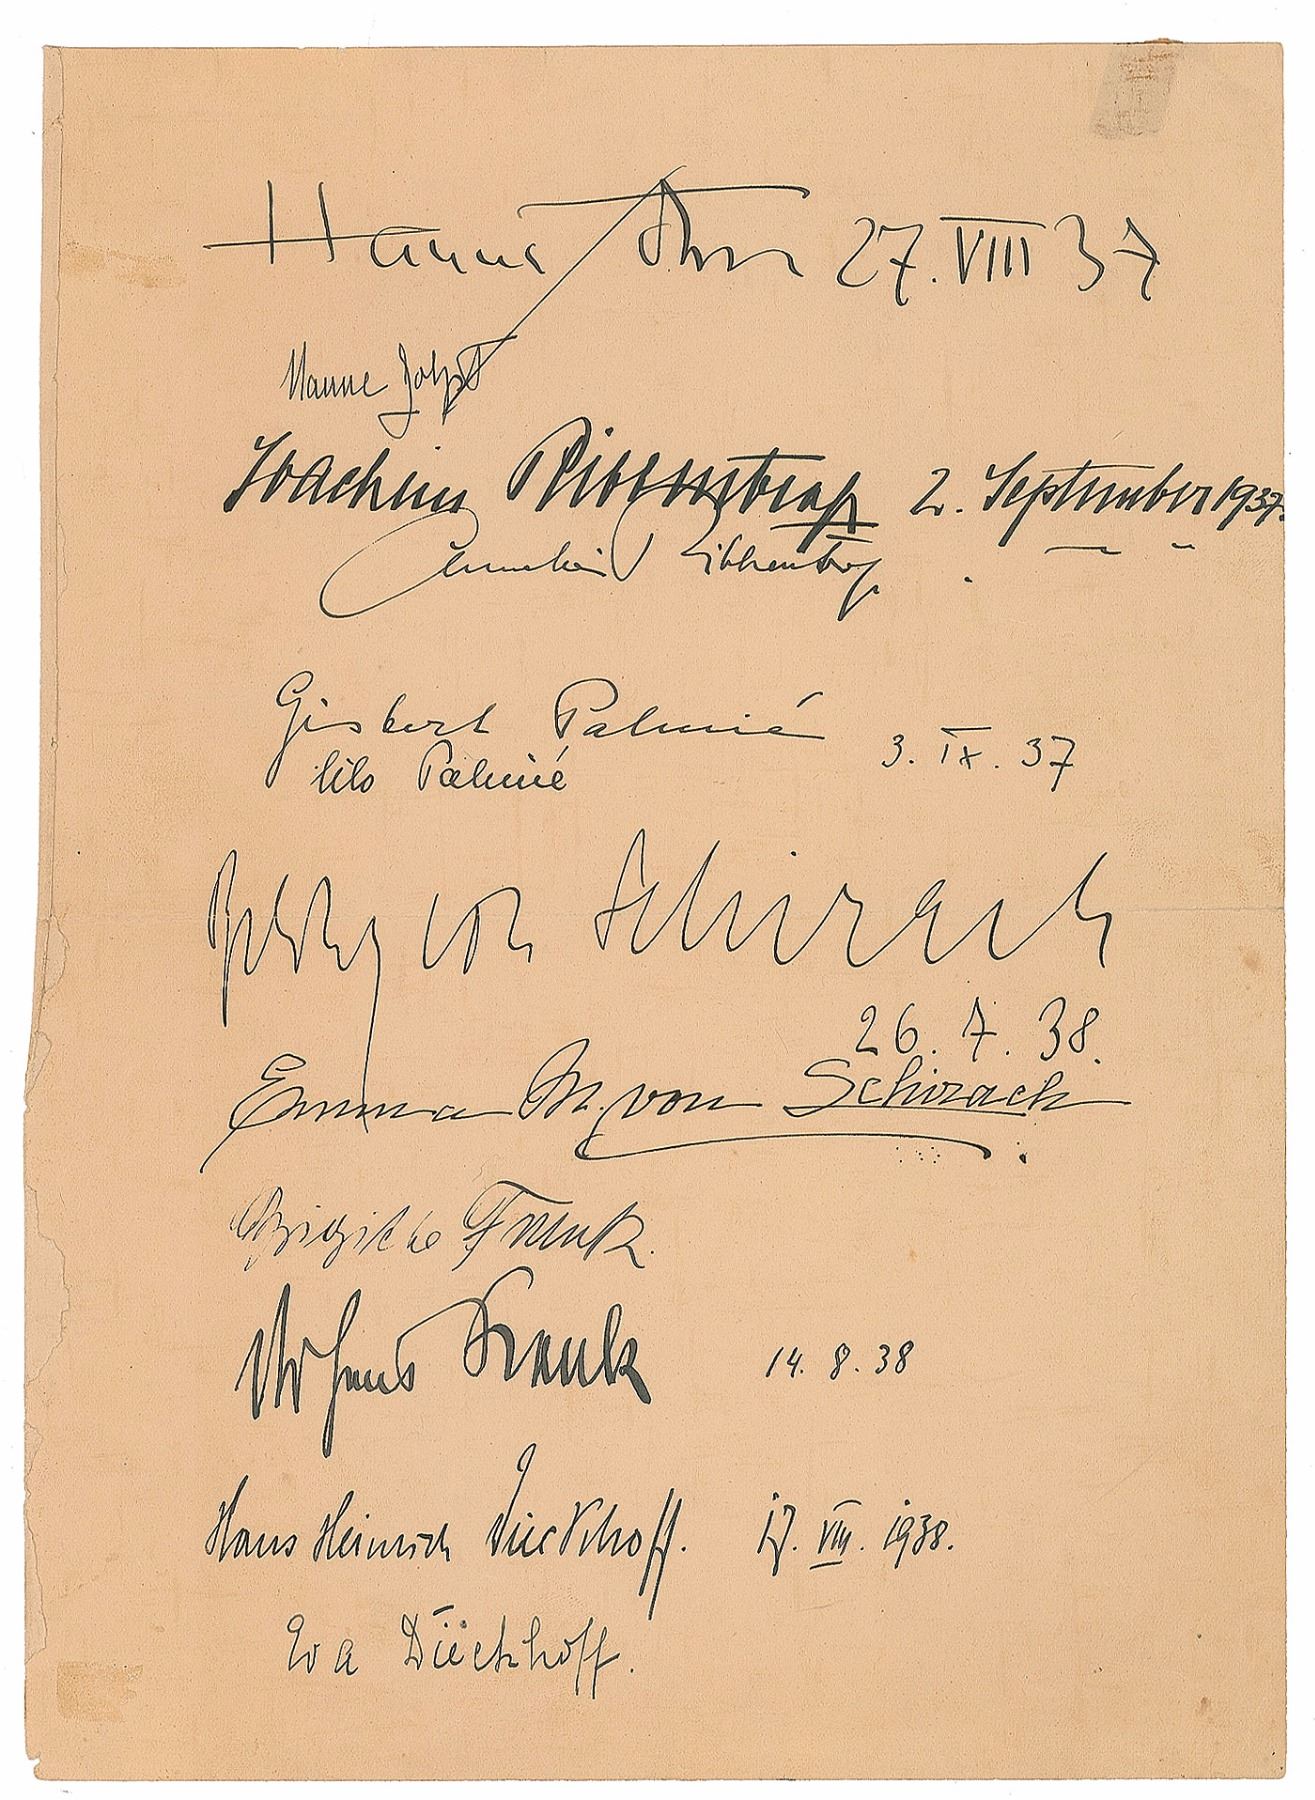 Hanns Johst 27. VIII 37
Hanne Johst
Joachim Ribbentrop 2. September 1937.
Annelies Ribbentrop
Gisbert Palmié 3. IX. 37
lilo Palmié
Baldur von Schirach
26. 7. 38.
Emma M. von Schirach
Brigitte Frank.
Hans Frank 14. 8. 38
Hans Heinrich Dieckhoff. 17. VIII. 1938.
Eva Dieckhoff.